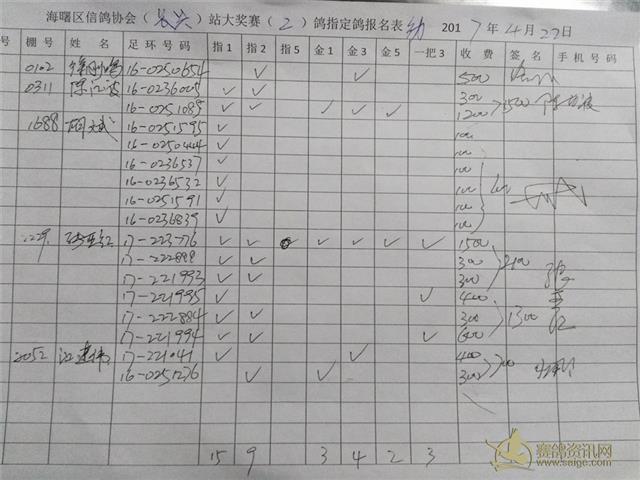 海曙区信鸽协会（长兴）站大奖赛（2）鸽指定鸽报名表 幼 2017年4月27日
号 棚号 姓名 足环号码 指1 指2 指5 金1 金3 金5 一把3 收费 签名 手机号码
0102 16-0250654 ✓ ✓ 500
0311 陈 16-0236005 ✓ ✓ 300
16-0251089 ✓ ✓ ✓ ✓ ✓ 1200 1500
1688 16-0251595 ✓ 100
16-0250444 ✓ 100
16-0236537 ✓ 100
16-0236532 ✓ 100
16-0251591 ✓ 100
16-0236839 ✓ 100
17-223776 ✓ ✓ ✓ ✓ ✓ ✓ 1500
17-222888 ✓ ✓ 300 2100
17-221993 ✓ ✓ 300
17-221995 ✓ ✓ 400
17-222884 ✓ ✓ 300 1300
17-221994 ✓ ✓ ✓ 600
2052 江建伟 17-221041 ✓ ✓ 400
16-0251276 ✓ ✓ 300 700
15 9 3 4 2 3
赛鸽资讯网
www.saige.com